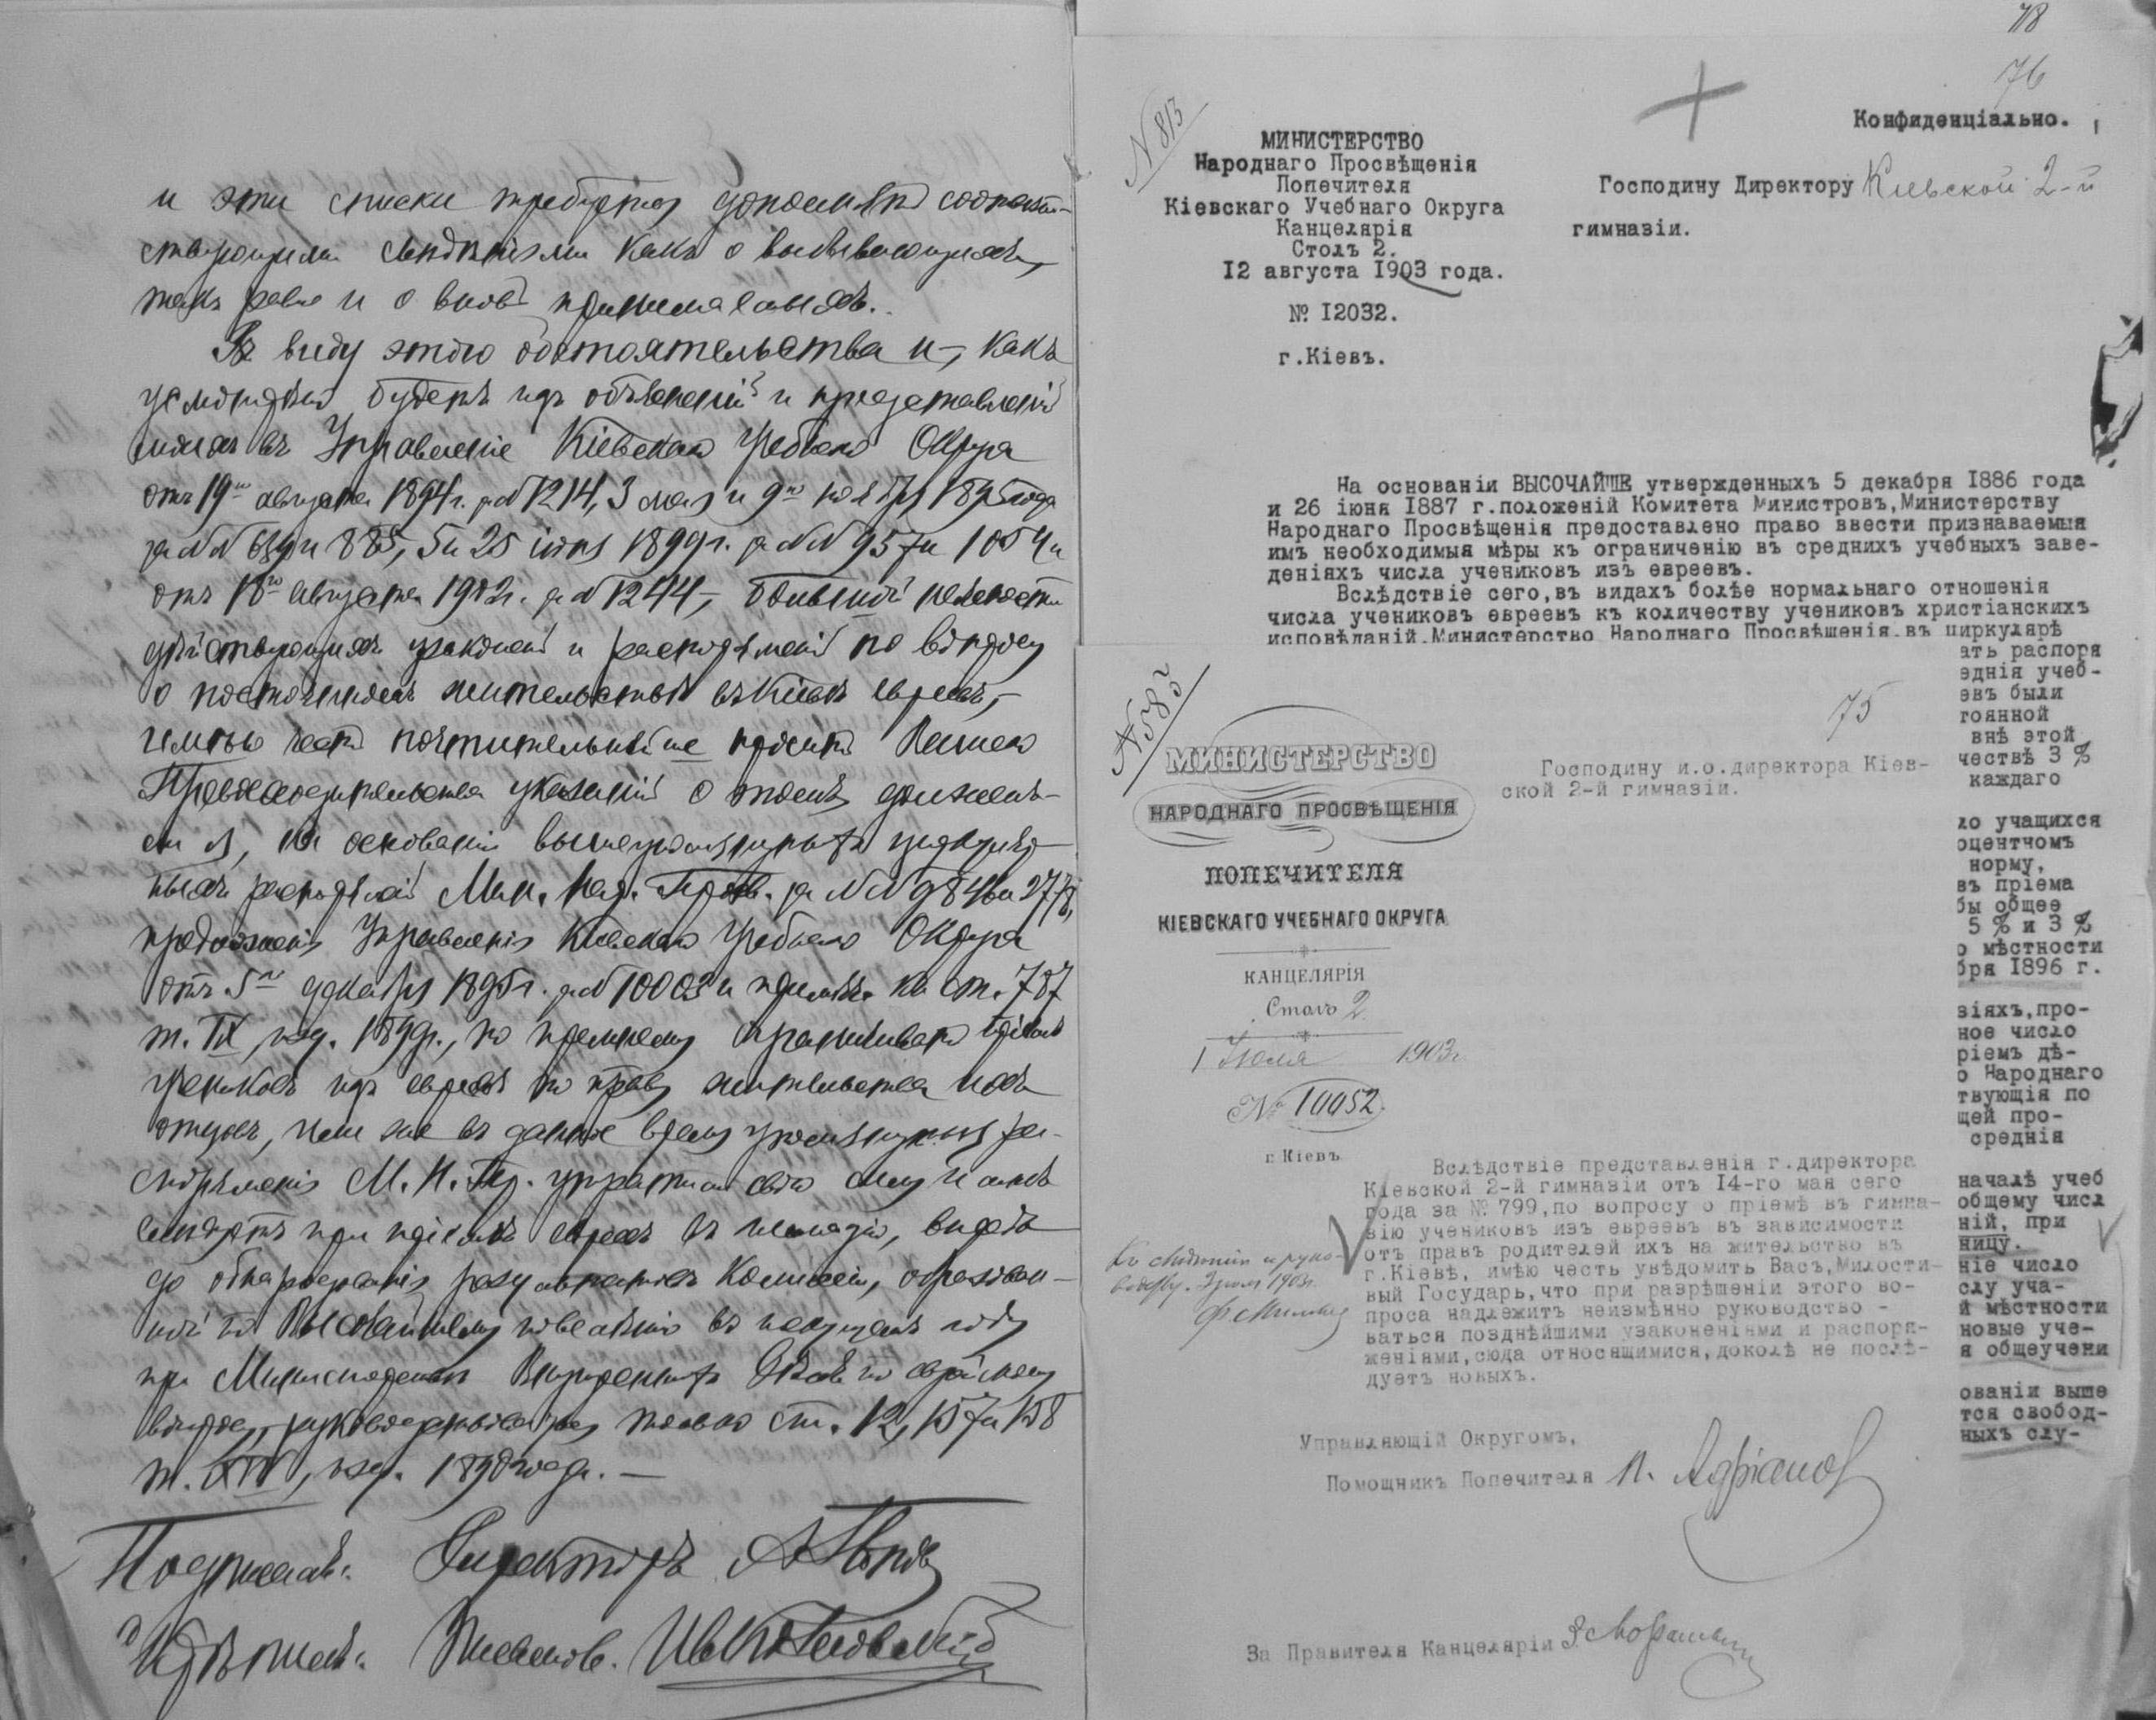 и эти списки требуется
какъ о выбывающихъ,
такъ равно и о вновь принимаемыхъ.
Въ виду этого обстоятельства и, какъ
будетъ изъ объясненій и представленій
моихъ въ Управленіе Кіевскаго Учебнаго Округа
отъ 19го августа 1894г. за N 1214, 3 мая и 9го ноября 1895 года
885, 5 и 25 іюня 1899г. за NN 957 и 1054 и
августа 1902г. за N 1244,
дѣйствующихъ узаконеній и распоряженій по вопросу
о жительствѣ въ Кіевѣ евреевъ,
имѣю честь почтительнѣйше просить Вашего
Превосходительства указаній о томъ, долженъ-
ли я, на основаніи вышеупомянутыхъ
распоряженій Мин. Нар. Просв. за NN
предложенія Управленія Кіевскаго Учебнаго Округа
отъ 5го декабря 1895г. за N 10003 и примѣч. къ ст. 787
т. IX, изд. 1899г., по прежнему пріемъ
учениковъ изъ евреевъ по праву жительства ихъ
отцовъ, или же въ данное время упомянутыя ра-
споряженія М. Н. Пр. утратили свою силу и мнѣ
слѣдуетъ при пріемѣ евреевъ въ гимназію, впредь
до обнародованія результатовъ Комиссіи, образован-
ной по Высочайшему повелѣнію въ текущемъ году
при Министерствѣ Внутреннихъ Дѣлъ по еврейскому
вопросу, руководствоваться только ст. 12, 157 и 158
т. XIV, изд. 1890 года. —
Подписалъ: Директоръ
Скрѣпилъ:
78
76
N 813
Конфиденціально.
МИНИСТЕРСТВО
Народнаго Просвѣщенія
Попечителя
Кіевскаго Учебнаго Округа
Канцелярія
Столъ 2.
12 августа 1903 года.
№ 12032.
г.Кіевъ.
Господину Директору Кіевской 2-й
гимназіи.
На основаніи ВЫСОЧАЙШЕ утвержденныхъ 5 декабря 1886 года
и 26 іюня 1887 г.положеній Комитета Министровъ,Министерству
Народнаго Просвѣщенія предоставлено право ввести признаваемыя
имъ необходимыя мѣры къ ограниченію въ среднихъ учебныхъ заве-
деніяхъ числа учениковъ изъ евреевъ.
Вслѣдствіе сего,въ видахъ болѣе нормальнаго отношенія
числа учениковъ евреевъ къ количеству учениковъ христіанскихъ
исповѣданій,Министерство Народнаго Просвѣщенія,въ циркулярѣ
ать распоря
еднія учеб-
евъ были
тоянной
внѣ этой
чествѣ 3 %
каждаго
ло учащихся
оцентномъ
норму,
въ пріема
бы общее
5 % и 3 %
о мѣстности
бря 1896 г.
зіяхъ,про-
ное число
ріемъ дѣ-
о Народнаго
твующія по
щей про-
среднія
началѣ учеб
общему числ
ній, при
ницу.
ніе число
слу уча-
й мѣстности
новые уче-
я общеучени
ованіи выше
тся свобод-
ныхъ слу-
N 585
75
МИНИСТЕРСТВО
НАРОДНАГО ПРОСВѢЩЕНІЯ
ПОПЕЧИТЕЛЯ
КІЕВСКАГО УЧЕБНАГО ОКРУГА
КАНЦЕЛЯРІЯ
Столъ 2
1 Іюля 1903г
№ 10052.
г. Кіевъ
Господину и.о.директора Кіев-
ской 2-й гимназіи.
Вслѣдствіе представленія г.директора
Кіевской 2-й гимназіи отъ 14-го мая сего
года за № 799,по вопросу о пріемѣ въ гимна-
зію учениковъ изъ евреевъ въ зависимости
отъ правъ родителей ихъ на жительство въ
г.Кіевѣ, имѣю честь увѣдомить Васъ,Милости-
вый Государь,что при разрѣшеніи этого во-
проса надлежитъ неизмѣнно руководство -
ваться позднѣйшими узаконеніями и распоря-
женіями,сюда относящимися,доколѣ не послѣ-
дуетъ новыхъ.
Къ свѣдѣнію и руко-
водству. 3 іюля 1903г.
Управляющій Округомъ,
Помощникъ Попечителя П. Адріановъ
За Правителя Канцеляріи